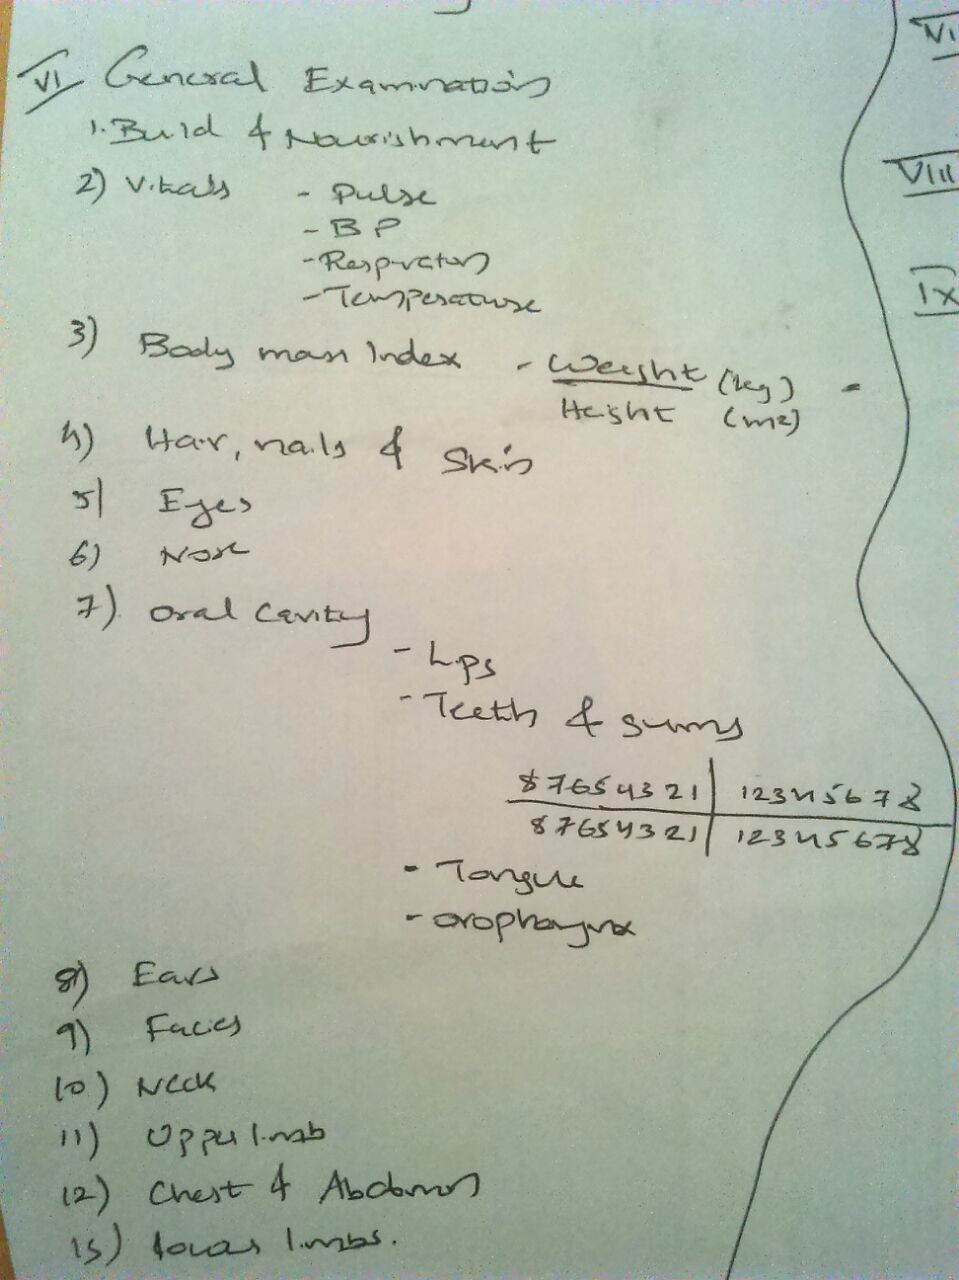 VI General Examination
1. Build & Nourishment
2) Vitals - Pulse
- BP
- Respiration
- Temperature
3) Body mass Index - Weight (kg)
Height (m2)
4) Hair, nails & Skin
5) Eyes
6) Nose
7) Oral Cavity
- Lips
- Teeth & gums
87654321 | 12345678
87654321 | 12345678
- Tongue
- oropharynx
8) Ears
9) Facies
10) Neck
11) Upper limb
12) Chest & Abdomen
13) lower limbs.
VII
VIII
IX